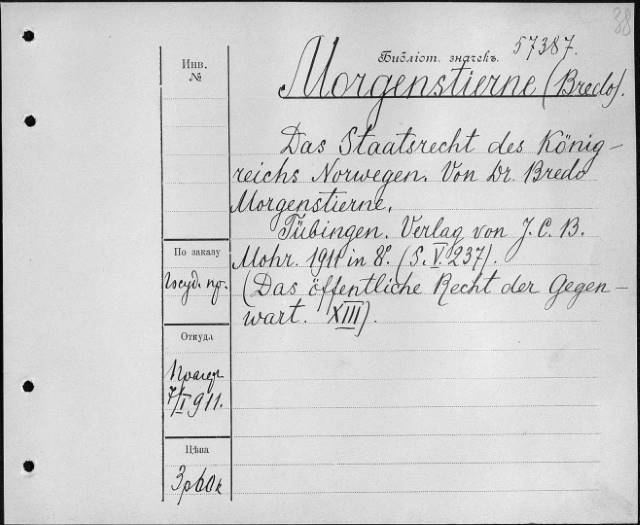 38
57387.
Библіот. значекъ.
Инв.
№
Morgenstierne (Bredo).
Das Staatsrecht des König-
reichs Norwegen. Von Dr. Bredo
Morgenstierne.
Tübingen. Verlag von J. C. B.
Mohr. 1911 in 8º. (S. V. 237).
(Das öffentliche Recht der Gegen-
wart. XIII).
По заказу
Госуд. пр.
Откуда
7/I 911.
Цѣна
3 р 60 к